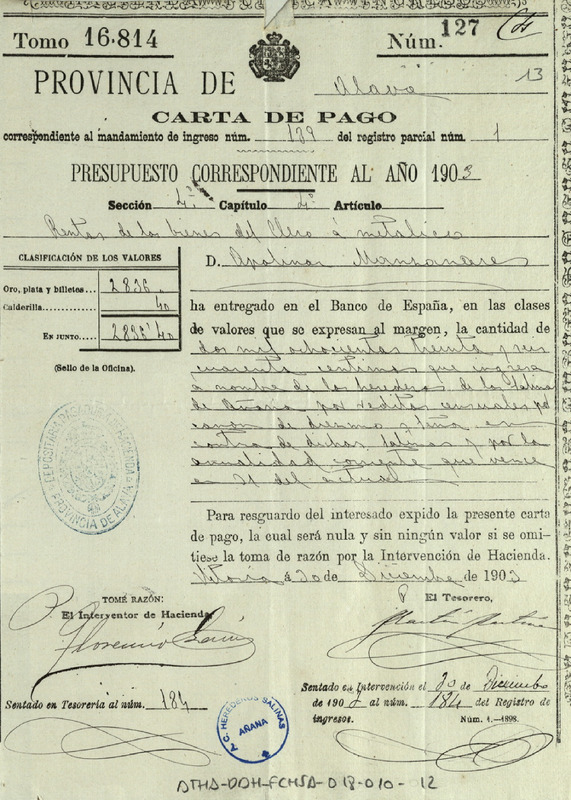 Tomo 16.814
Núm. 127
13
PROVINCIA DE Alava
CARTA DE PAGO
correspondiente al mandamiento de ingreso núm. 189 del registro parcial núm. 1
PRESUPUESTO CORRESPONDIENTE AL AÑO 1903
Sección 4ª Capítulo 4º Artículo
Rentas de los bienes del Clero á metalico
CLASIFICACIÓN DE LOS VALORES
Oro, plata y billetes... 2836
Calderilla 40
EN JUNTO 2836'40
(Sello de la Oficina).
D. Apolinar Manzanares
ha entregado en el Banco de España, en las clases
de valores que se expresan al margen, la cantidad de
dos mil ochocientas treinta y seis
cuarenta centimos que ingresa
a nombre de los herederos de las Salinas
de Añana por reditos censuales por
canon de diezmo y en
contra de dichas salinas y por la
anualidad corriente que vence
en 31 del actual
Para resguardo del interesado expido la presente carta
de pago, la cual será nula y sin ningún valor si se omi-
tiese la toma de razón por la Intervención de Hacienda.
Vitoria á 30 de Diciembre de 1903
DEPOSITARIA PAGADURIA DE HACIENDA
PROVINCIA DE ALAVA
TOMÉ RAZÓN:
El Interventor de Hacienda
Florencio
P. El Tesorero,
Sentado en Tesorería al núm. 184
Sentado en Intervención el 30 de Diciembre
de 1903 al núm. 184 del Registro de
ingresos.
Núm. 1.—1898.
C. HEREDEROS SALINAS
AÑANA
ATHA-DAH-FCHSA-018-010-12